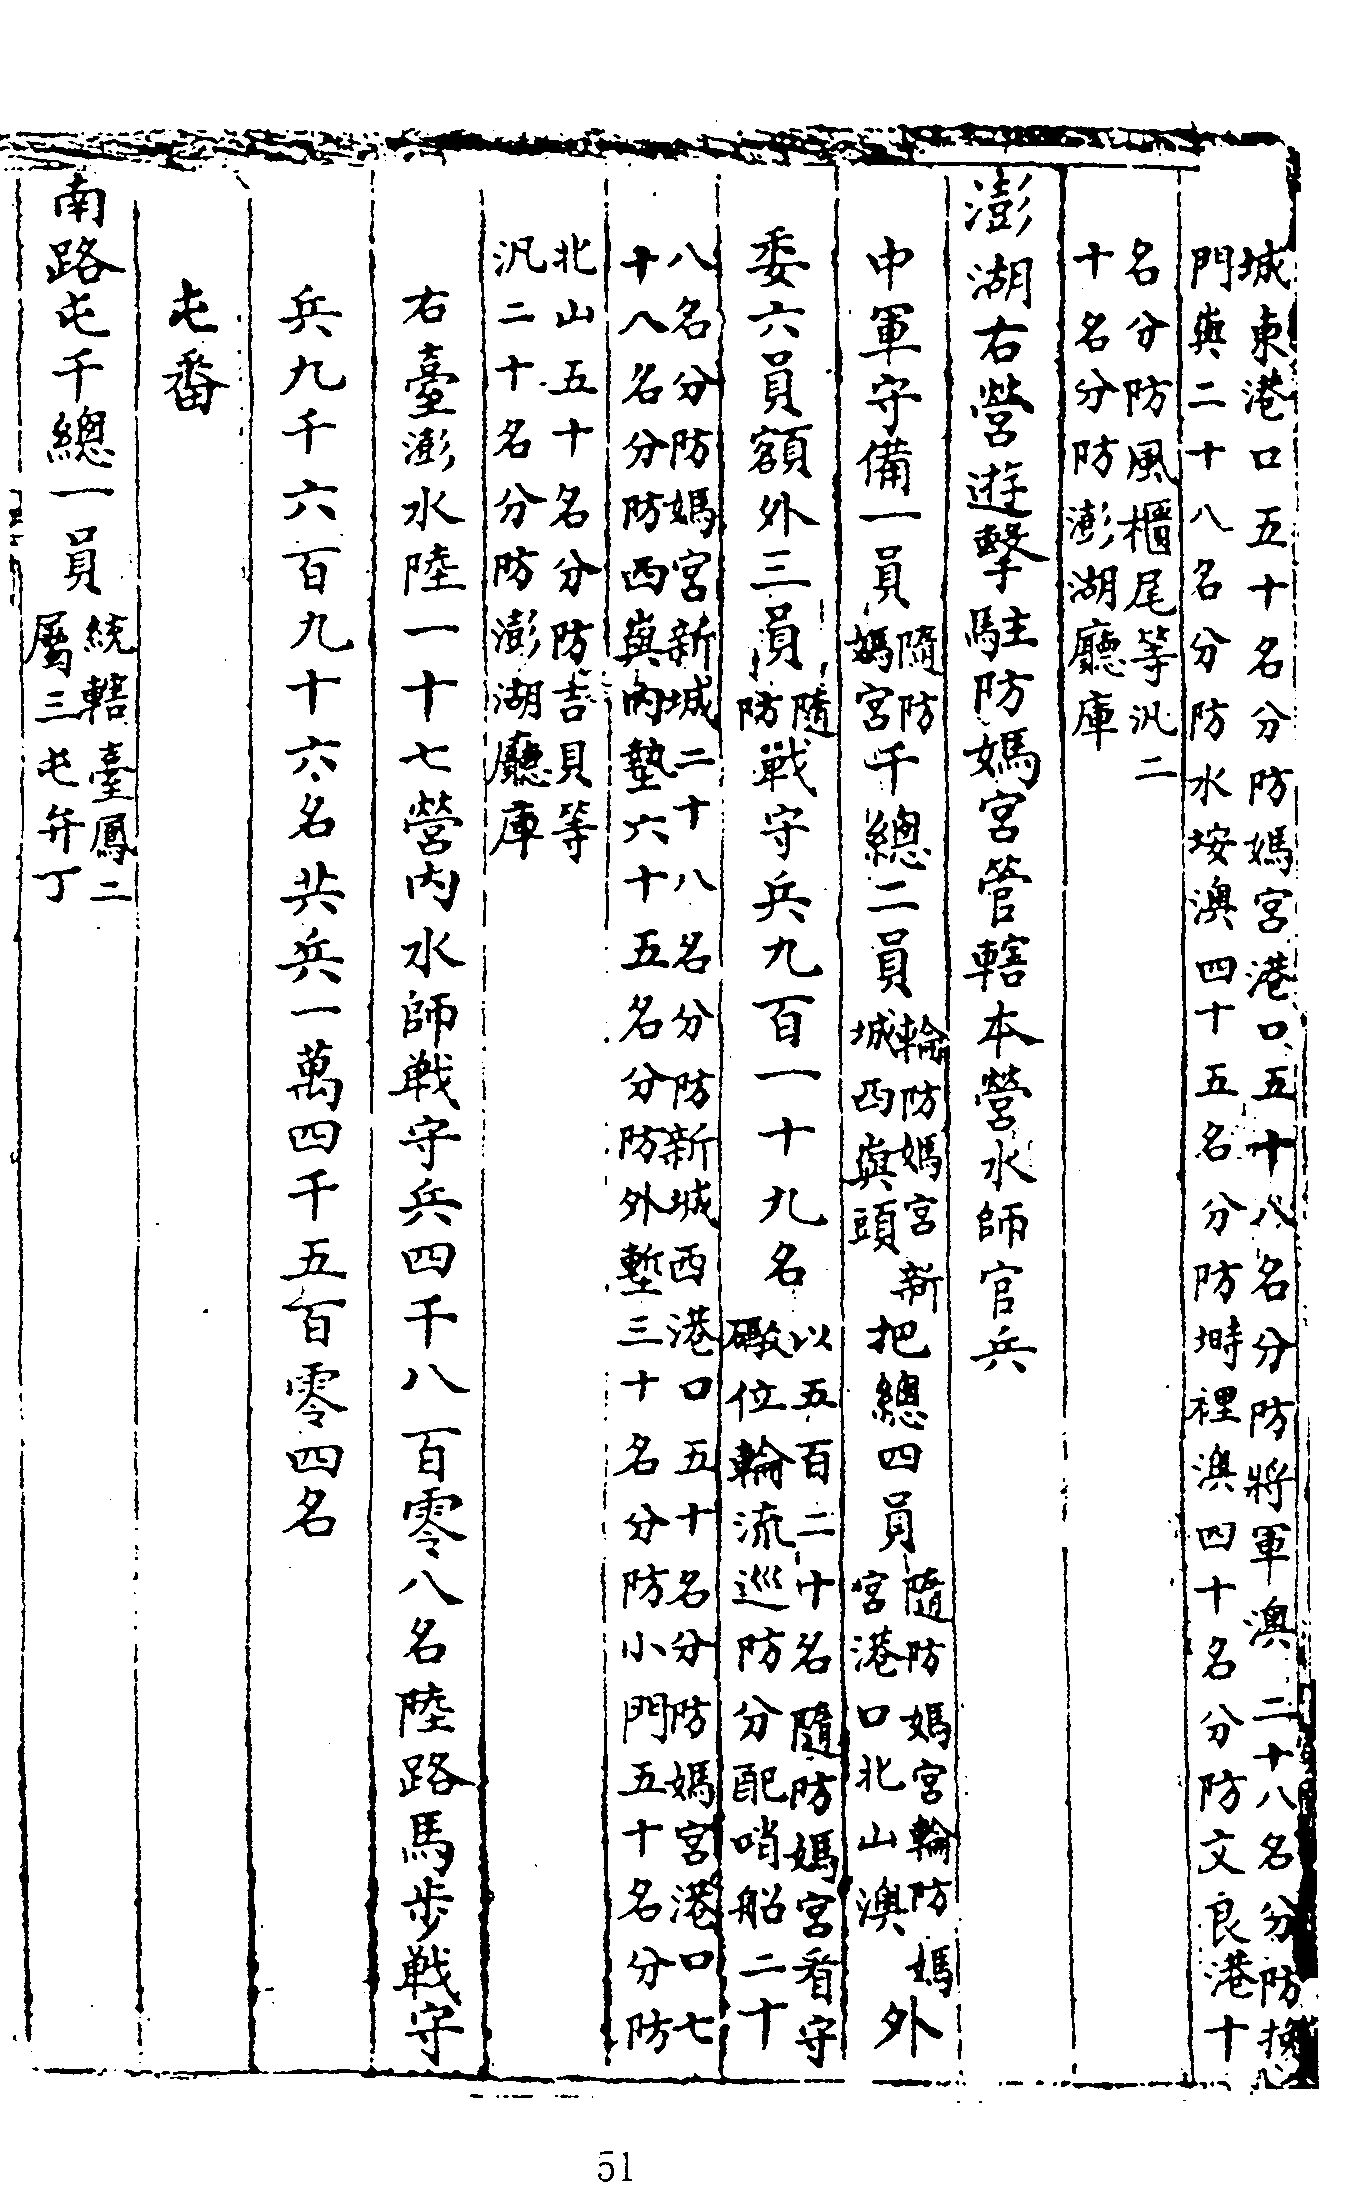 城東港口五十名分防媽宮港口五十八名分防將軍澳二十八名分防
門與二十八名分防水垵澳四十五名分防塒裡澳四十名分防文良港十
名分防風櫃尾等汛二
十名分防澎湖廳庫
澎湖右營遊擊駐防媽宮管轄本營水師官兵
中軍守備一員隨防媽宮千總二員輪防媽宮新城西與頭把總四員隨防媽宮輪防媽宮港口北山澳外
委六員額外三員隨防戰守兵九百一十九名以五百二十名隨防媽宮看守礮位輪流巡防分配哨船二十
八名分防媽宮新城二十八名分防新城西港口五十名分防媽宮港口七
十八名分防西與內塹六十五名分防外塹三十名分防小門五十名分防
北山五十名分防吉貝等
汛二十名分防澎湖廳庫
右臺澎水陸一十七營內水師戰守兵四千八百零八名陸路馬步戰守
兵九千六百九十六名共兵一萬四千五百零四名
屯番
南路屯千總一員統轄臺鳳二屬三屯弁丁
51